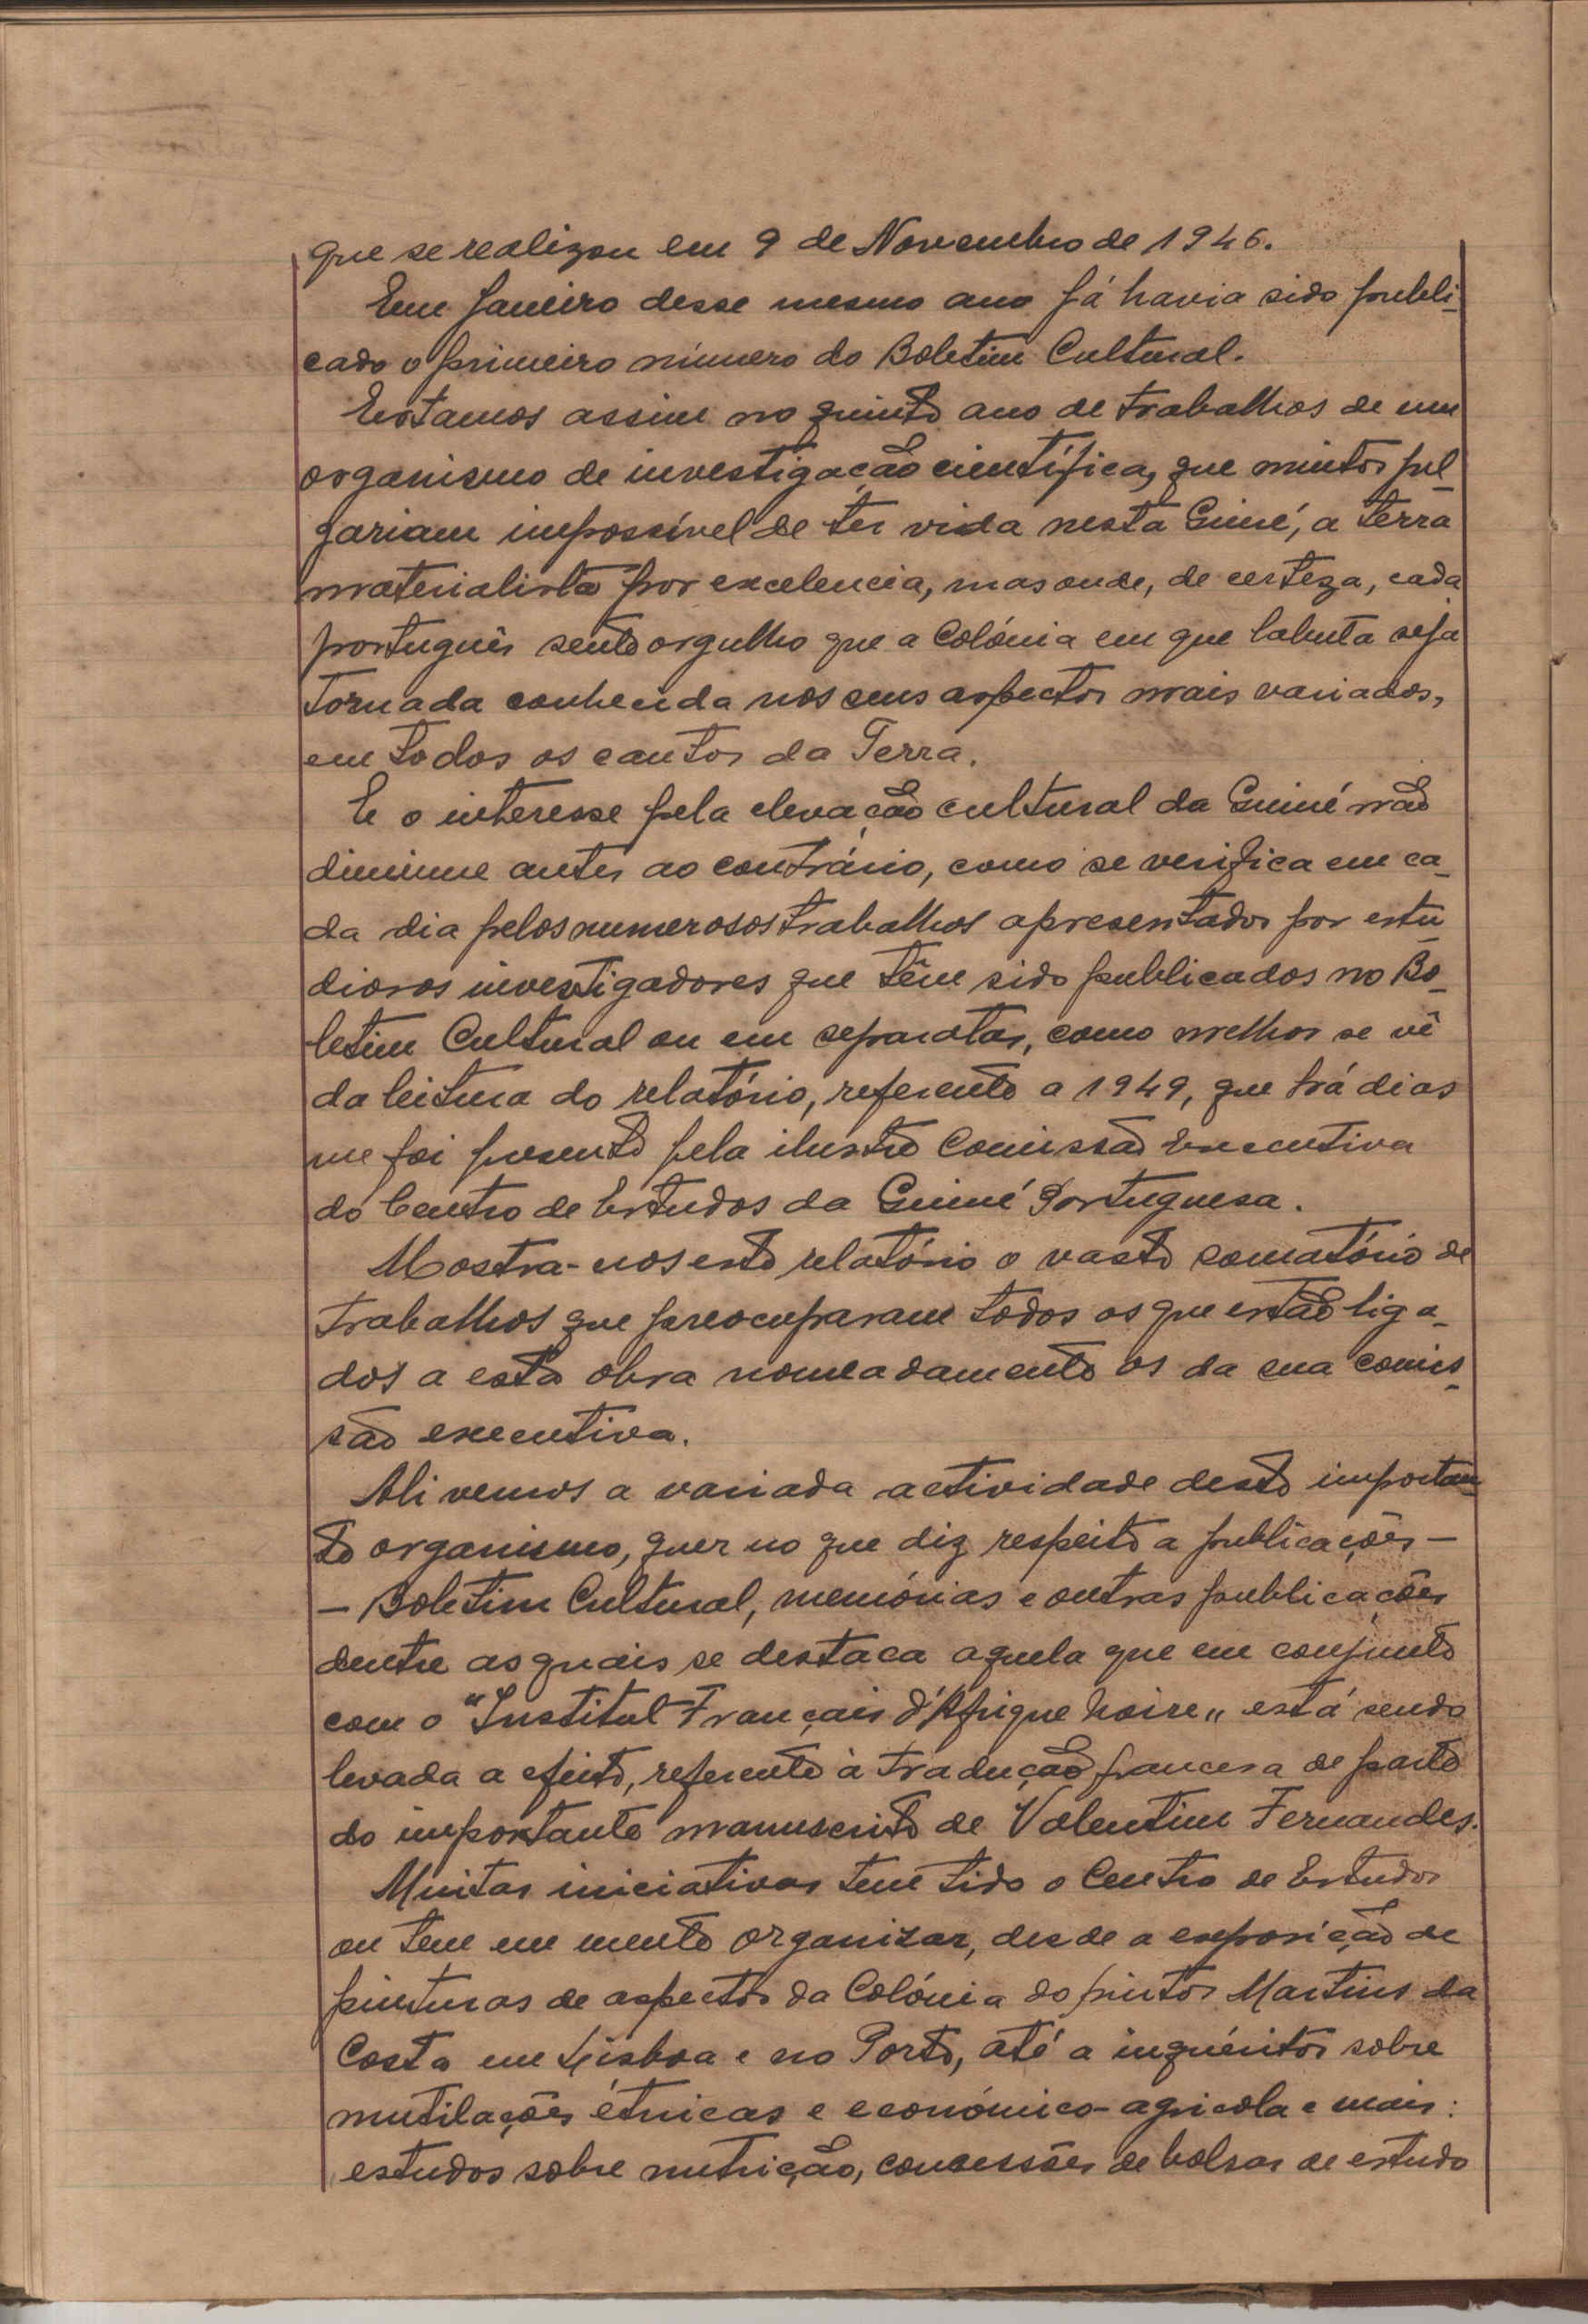 que se realizou em 9 de Novembro de 1946.
Em Janeiro desse mesmo ano já havia sido publi-
cado o primeiro número do Boletim Cultural.
Estamos assim no quinto ano de trabalhos de um
organismo de investigação científica, que muitos jul-
gariam impossível de ter vida nesta Guiné, a terra
materialista por excelencia, mas onde, de certeza, cada
português sente orgulho que a Colónia em que labuta seja
tornada conhecida nos seus aspectos mais variados,
em todos os cantos da Terra.
E o interesse pela elevação cultural da Guiné não
diminue antes ao contrário, como se verifica em ca-
da dia pelos numerosos trabalhos apresentados por estu-
diosos investigadores que têm sido publicados no Bo-
letim Cultural ou em separatas, como melhor se vê
da leitura do relatório, referente a 1949, que há dias
me foi presente pela ilustre Comissão Executiva
do Centro de Estudos da Guiné Portuguesa.
Mostra-nos este relatório o vasto somatório de
trabalhos que preocuparam todos os que estão liga-
dos a esta obra nomeadamente os da sua comis-
são executiva.
Ali vemos a variada actividade deste importan-
te organismo, quer no que diz respeito a publicações -
- Boletim Cultural, memórias e outras publicações
dentre as quais se destaca aquela que em conjunto
com o "Institut Français d'Afrique Noire" está sendo
levada a efeito, referente à tradução francesa de parte
do importante manuscrito de Valentim Fernandes.
Muitas iniciativas tem tido o Centro de Estudos
ou tem em mente organizar, desde a exposição de
pinturas de aspectos da Colónia do pintor Martins da
Costa em Lisboa e no Porto, até a inquéritos sobre
mutilações étnicas e económico-agricola e mais:
estudos sobre nutrição, concessões de bolsas de estudo